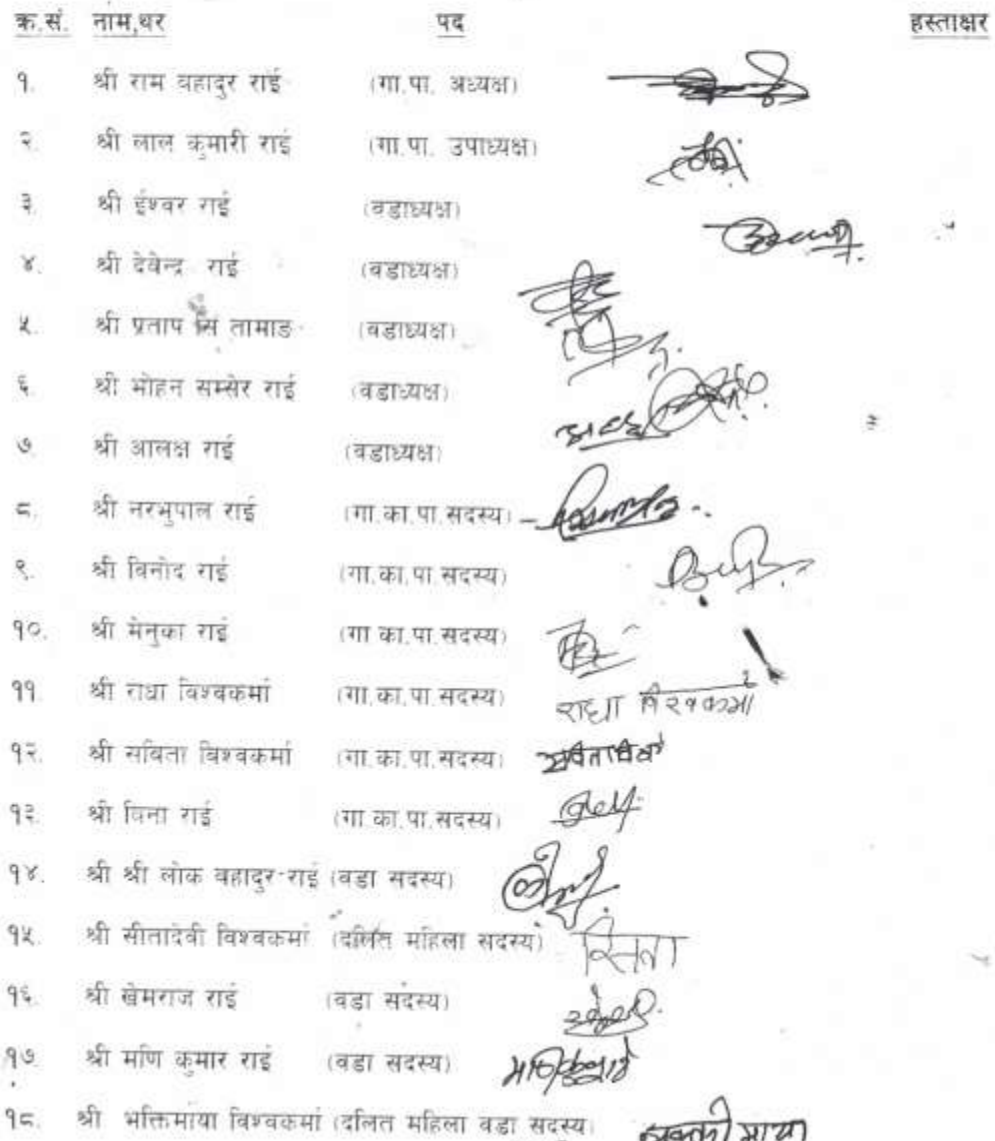 क्र.सं. नाम,थर पद हस्ताक्षर
१. श्री राम वहादुर राई (गा.पा. अध्यक्ष)
२. श्री लाल कुमारी राई (गा.पा. उपाध्यक्ष)
३. श्री ईश्वर राई (वडाध्यक्ष)
४. श्री देवेन्द्र राई (वडाध्यक्ष)
५. श्री प्रताप सिं तामाङ (वडाध्यक्ष)
६. श्री मोहन सम्सेर राई (वडाध्यक्ष)
७. श्री आलक्ष राई (वडाध्यक्ष)
८. श्री नरभुपाल राई (गा.का.पा.सदस्य)
९. श्री विनोद राई (गा.का.पा.सदस्य)
१०. श्री मेनुका राई (गा.का.पा.सदस्य)
११. श्री राधा विश्वकर्मा (गा.का.पा.सदस्य) राधा विश्वकर्मा
१२. श्री सविता विश्वकर्मा (गा.का.पा.सदस्य)
१३. श्री विना राई (गा.का.पा.सदस्य)
१४. श्री श्री लोक वहादुर राई (वडा सदस्य)
१५. श्री सीतादेवी विश्वकर्मा (दलित महिला सदस्य)
१६. श्री खेमराज राई (वडा सदस्य)
१७. श्री मणि कुमार राई (वडा सदस्य)
१८. श्री भक्तिमाया विश्वकर्मा (दलित महिला वडा सदस्य)